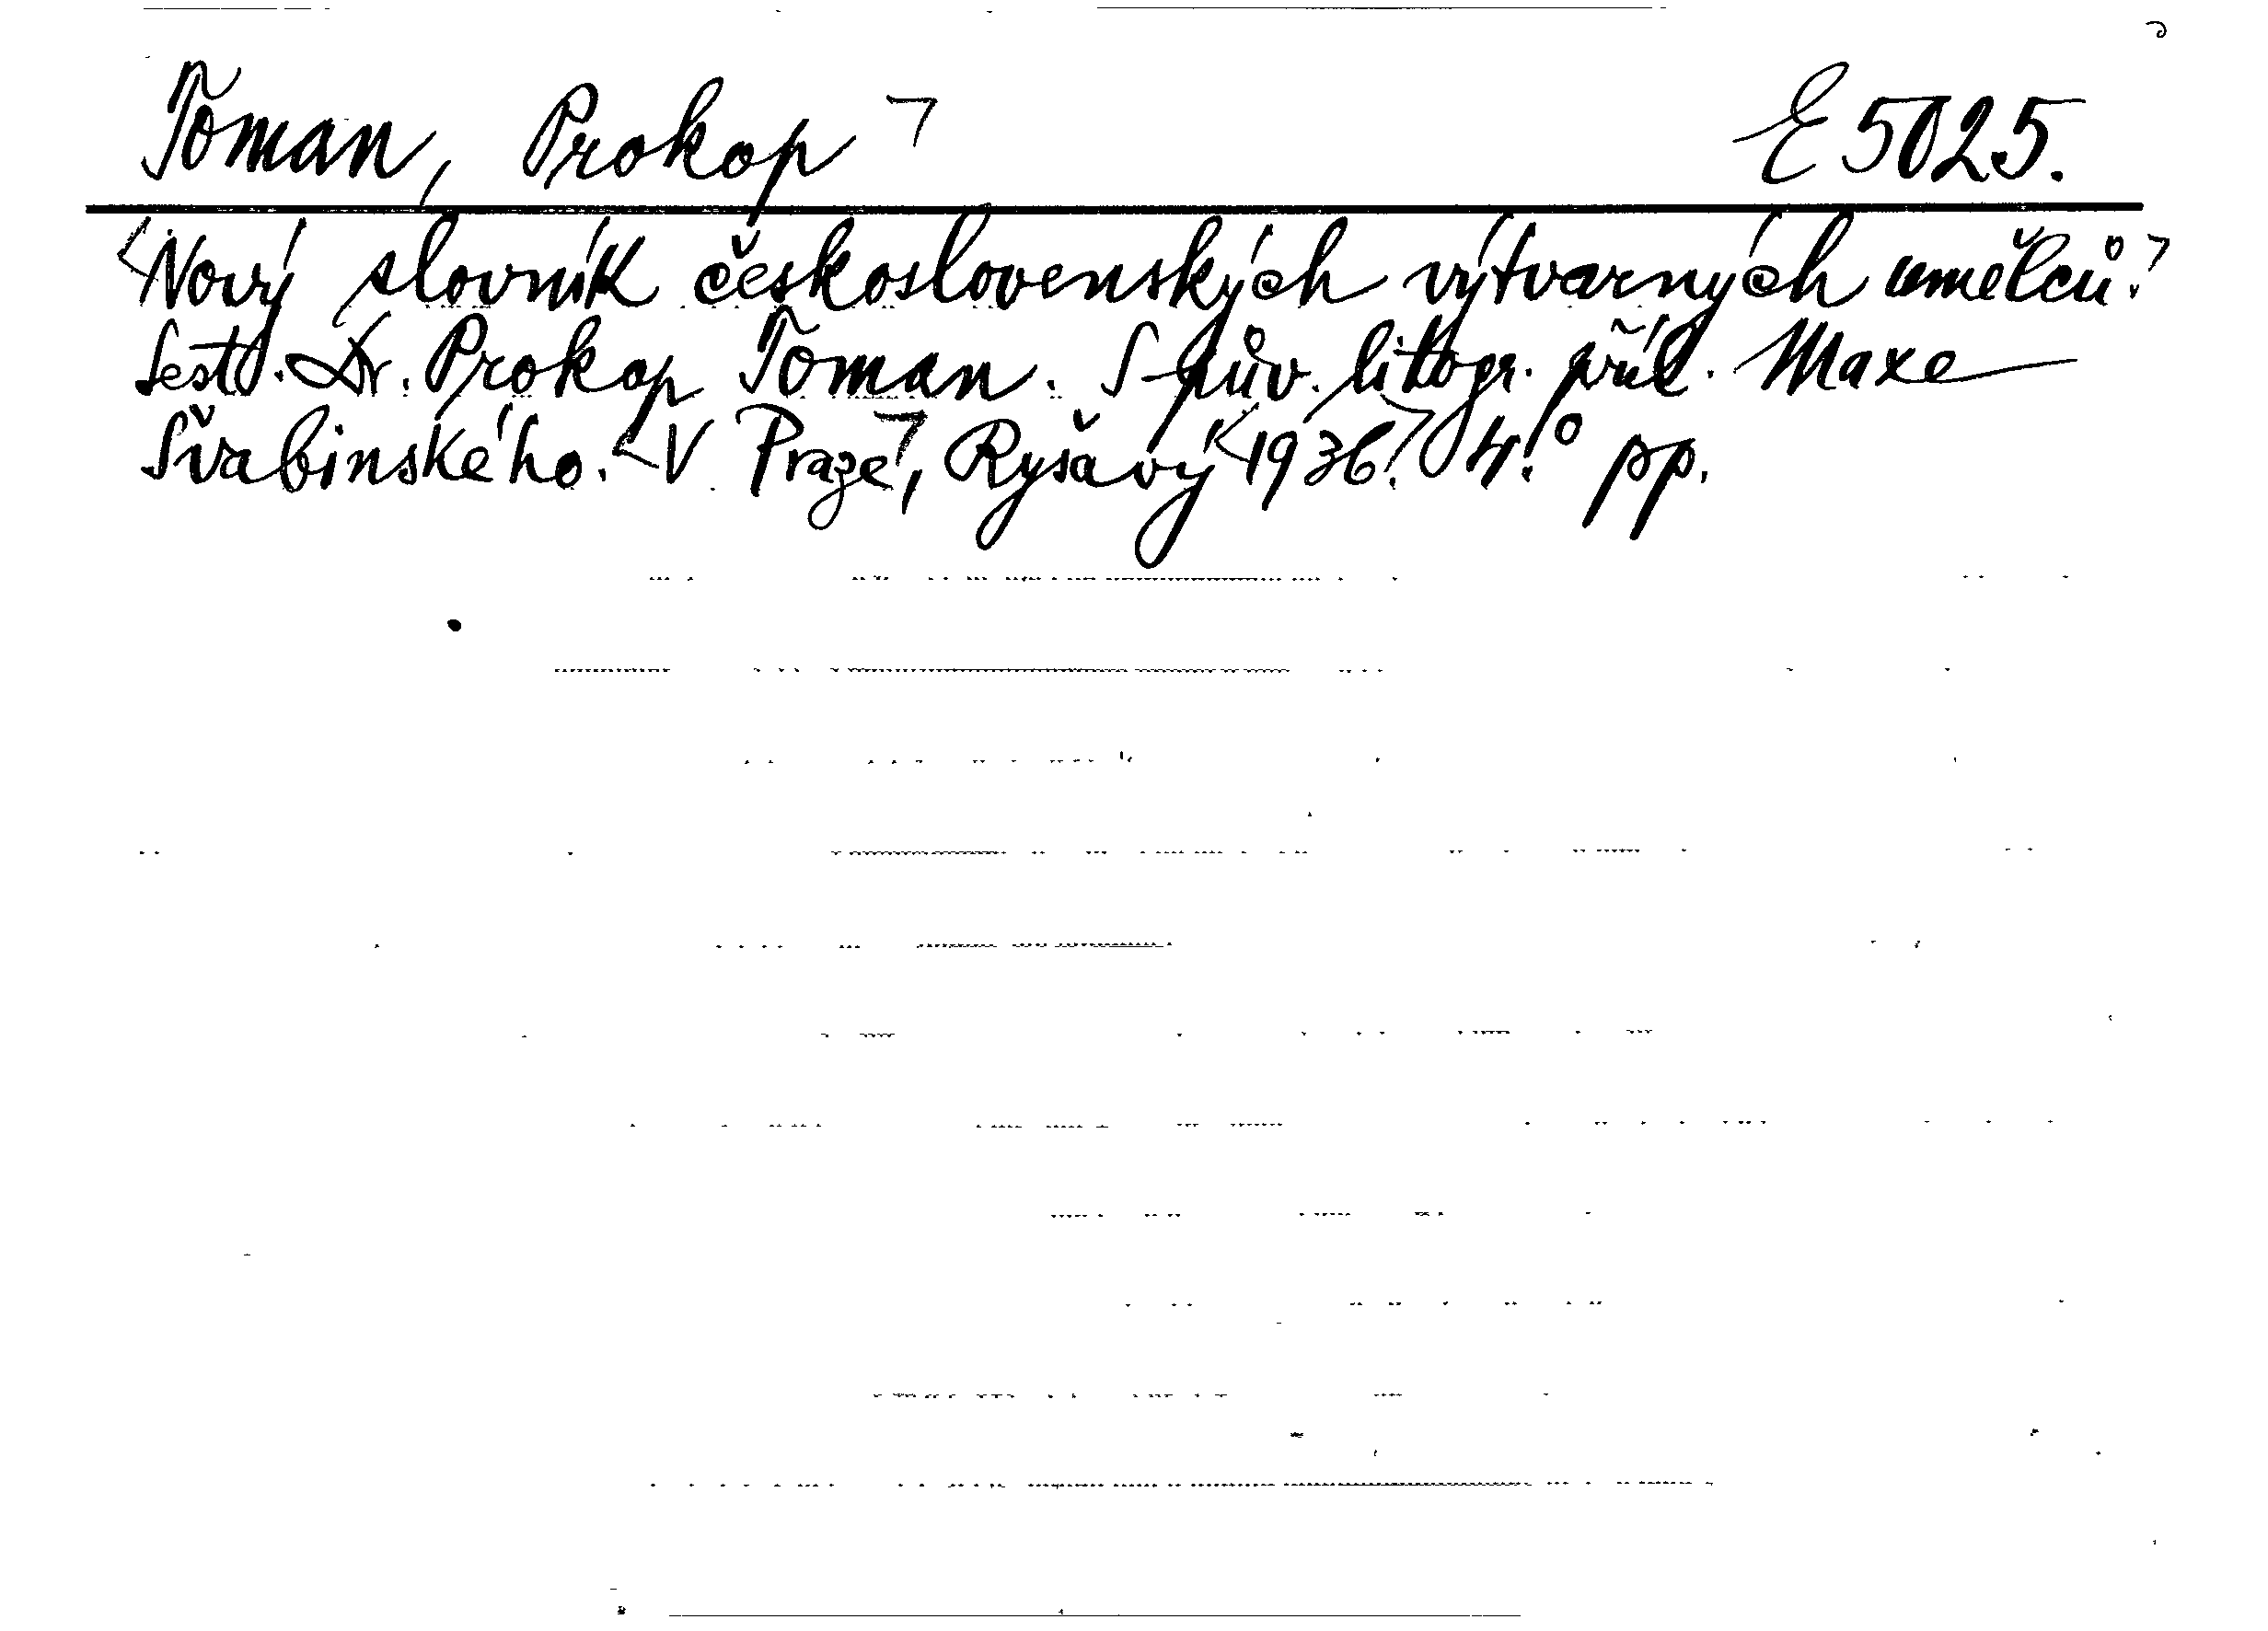 Toman, Prokop E 5025.
Nový slovník československých výtvarných umělců.
Sest. Dr. Prokop Toman. S pův. litogr. příl. Maxe
Švabinského. V Praze, Ryšavý 1936. 4.° pp.